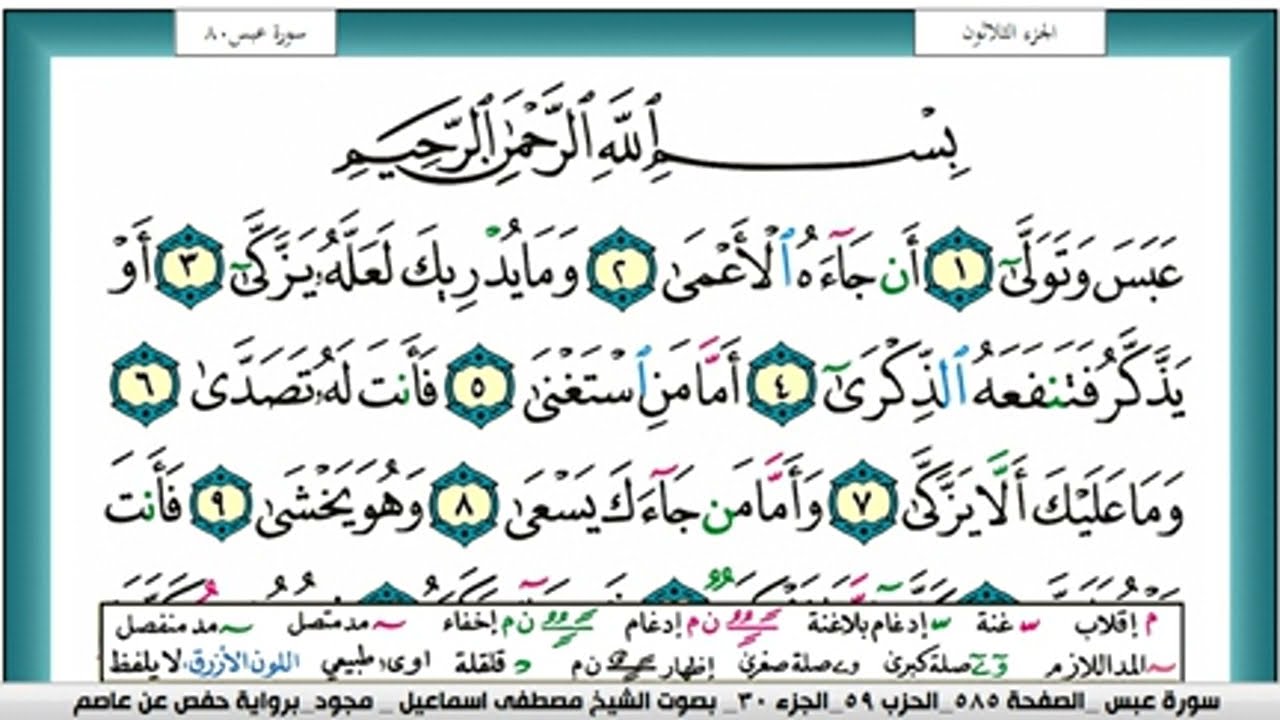 الجزء الثلاثون
سورة عبس ٨٠
بِسْمِ ٱللَّهِ ٱلرَّحْمَٰنِ ٱلرَّحِيمِ
عَبَسَ وَتَوَلَّىٰٓ ١ أَن جَآءَهُ ٱلْأَعْمَىٰ ٢ وَمَا يُدْرِيكَ لَعَلَّهُۥ يَزَّكَّىٰٓ ٣ أَوْ
يَذَّكَّرُ فَتَنفَعَهُ ٱلذِّكْرَىٰٓ ٤ أَمَّا مَنِ ٱسْتَغْنَىٰ ٥ فَأَنتَ لَهُۥ تَصَدَّىٰ ٦
وَمَا عَلَيْكَ أَلَّا يَزَّكَّىٰ ٧ وَأَمَّا مَن جَآءَكَ يَسْعَىٰ ٨ وَهُوَ يَخْشَىٰ ٩ فَأَنتَ
م إقلاب غنة إدغام بلاغنة ن م إدغام ن م إخفاء مد متصل مد منفصل
المد اللازم صلة كبرى صلة صغرى إظهار ن م قلقلة اوى طبيعي اللون الأزرق لا يلفظ
سورة عبس _الصفحة ٥٨٥_الحزب ٥٩_الجزء ٣٠_ بصوت الشيخ مصطفى اسماعيل _ مجود_برواية حفص عن عاصم